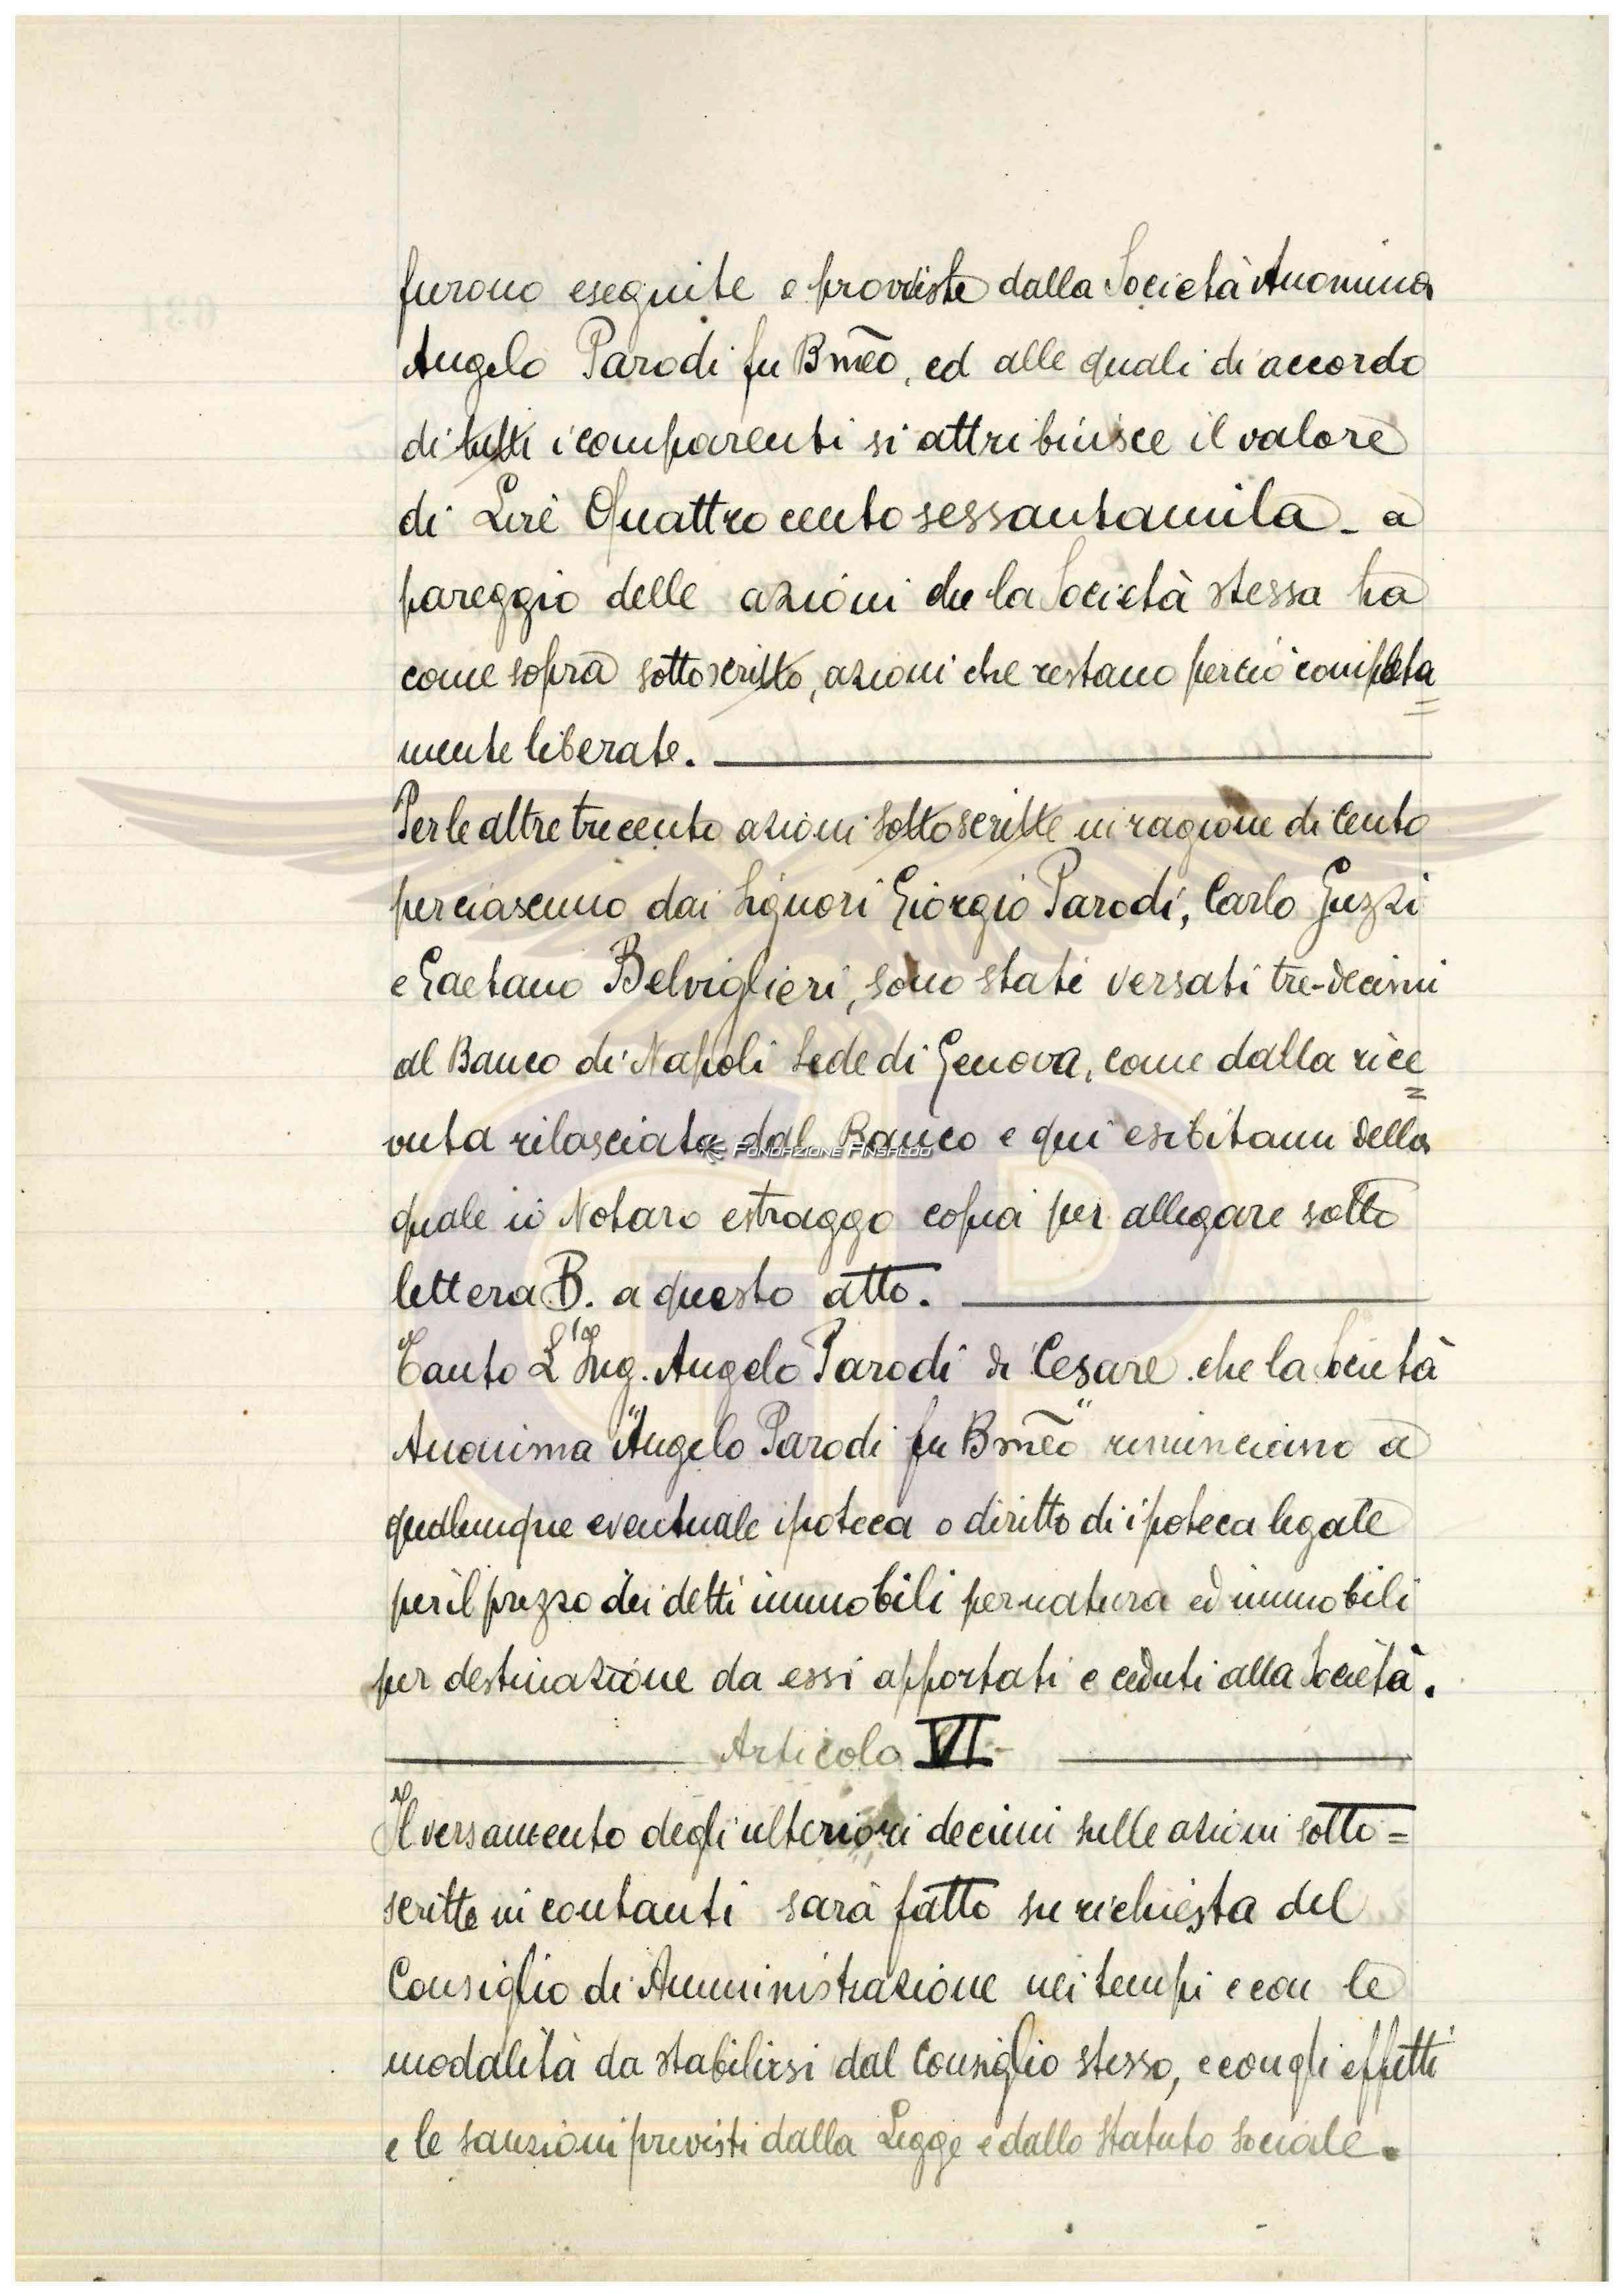 furono eseguite e provviste dalla Società Anonima
Angelo Parodi fu Bmeo, ed alle quali di accordo
di tutti i comparenti si attribuisce il valore
di Lire Quattrocentosessantamila - a
pareggio delle azioni che la Società stessa ha
come sopra sottoscritto, azioni che restano perciò completa
mente liberate.
Per le altre trecento azioni sottoscritte in ragione di cento
per ciascuno dai Signori Giorgio Parodi, Carlo Guzzi
e Gaetano Belviglieri, sono stati versati tre-decimi
al Banco di Napoli Sede di Genova, come dalla rice
vuta rilasciata dal Banco e qui esibitami della
FONDAZIONE ANSALDO
quale io Notaro estraggo copia per allegare sotto
lettera B. a questo atto.
Tanto L'Ing. Angelo Parodi di Cesare che la Società
Anonima "Angelo Parodi fu Bmeo" rinunciano a
qualunque eventuale ipoteca o diritto di ipoteca legale
per il prezzo dei detti immobili per natura ed immobili
per destinazione da essi apportati e ceduti alla Società.
Articolo VI-
Il versamento degli ulteriori decimi sulle azioni sotto=
scritte in contanti sarà fatto su richiesta del
Consiglio di Amministrazione nei tempi e con le
modalità da stabilirsi dal Consiglio stesso, e con gli effetti
e le sanzioni previsti dalla Legge e dallo Statuto Sociale.